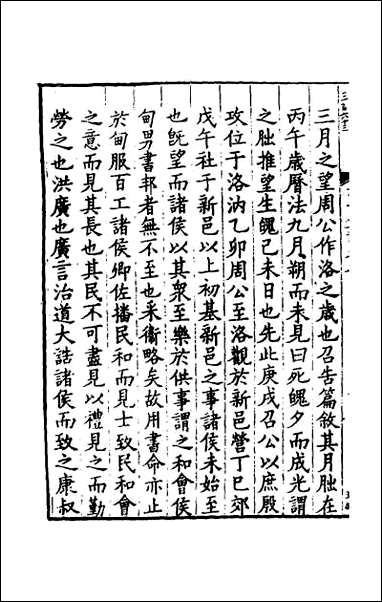 三月之望周公作洛之歲也召告篇敘其月朏在
丙午歲曆法九月朔而未見曰死魄夕而成光謂
之朏推望生魄己未日也先此庚戌召公以庶殷
攻位于洛汭乙卯周公至洛觀於新邑營丁巳郊
戊午社于新邑以上初基新邑之事諸侯未始至
也旣望而諸侯以其衆至樂於供事謂之和會侯
甸男書邦者無不至也采衛略矣故用書命亦止
於甸服百工諸侯卿佐播民和而見士致民和會
之意而見其長也其民不可盡見以禮見之而勤
勞之也洪廣也廣言治道大誥諸侯而致之康叔